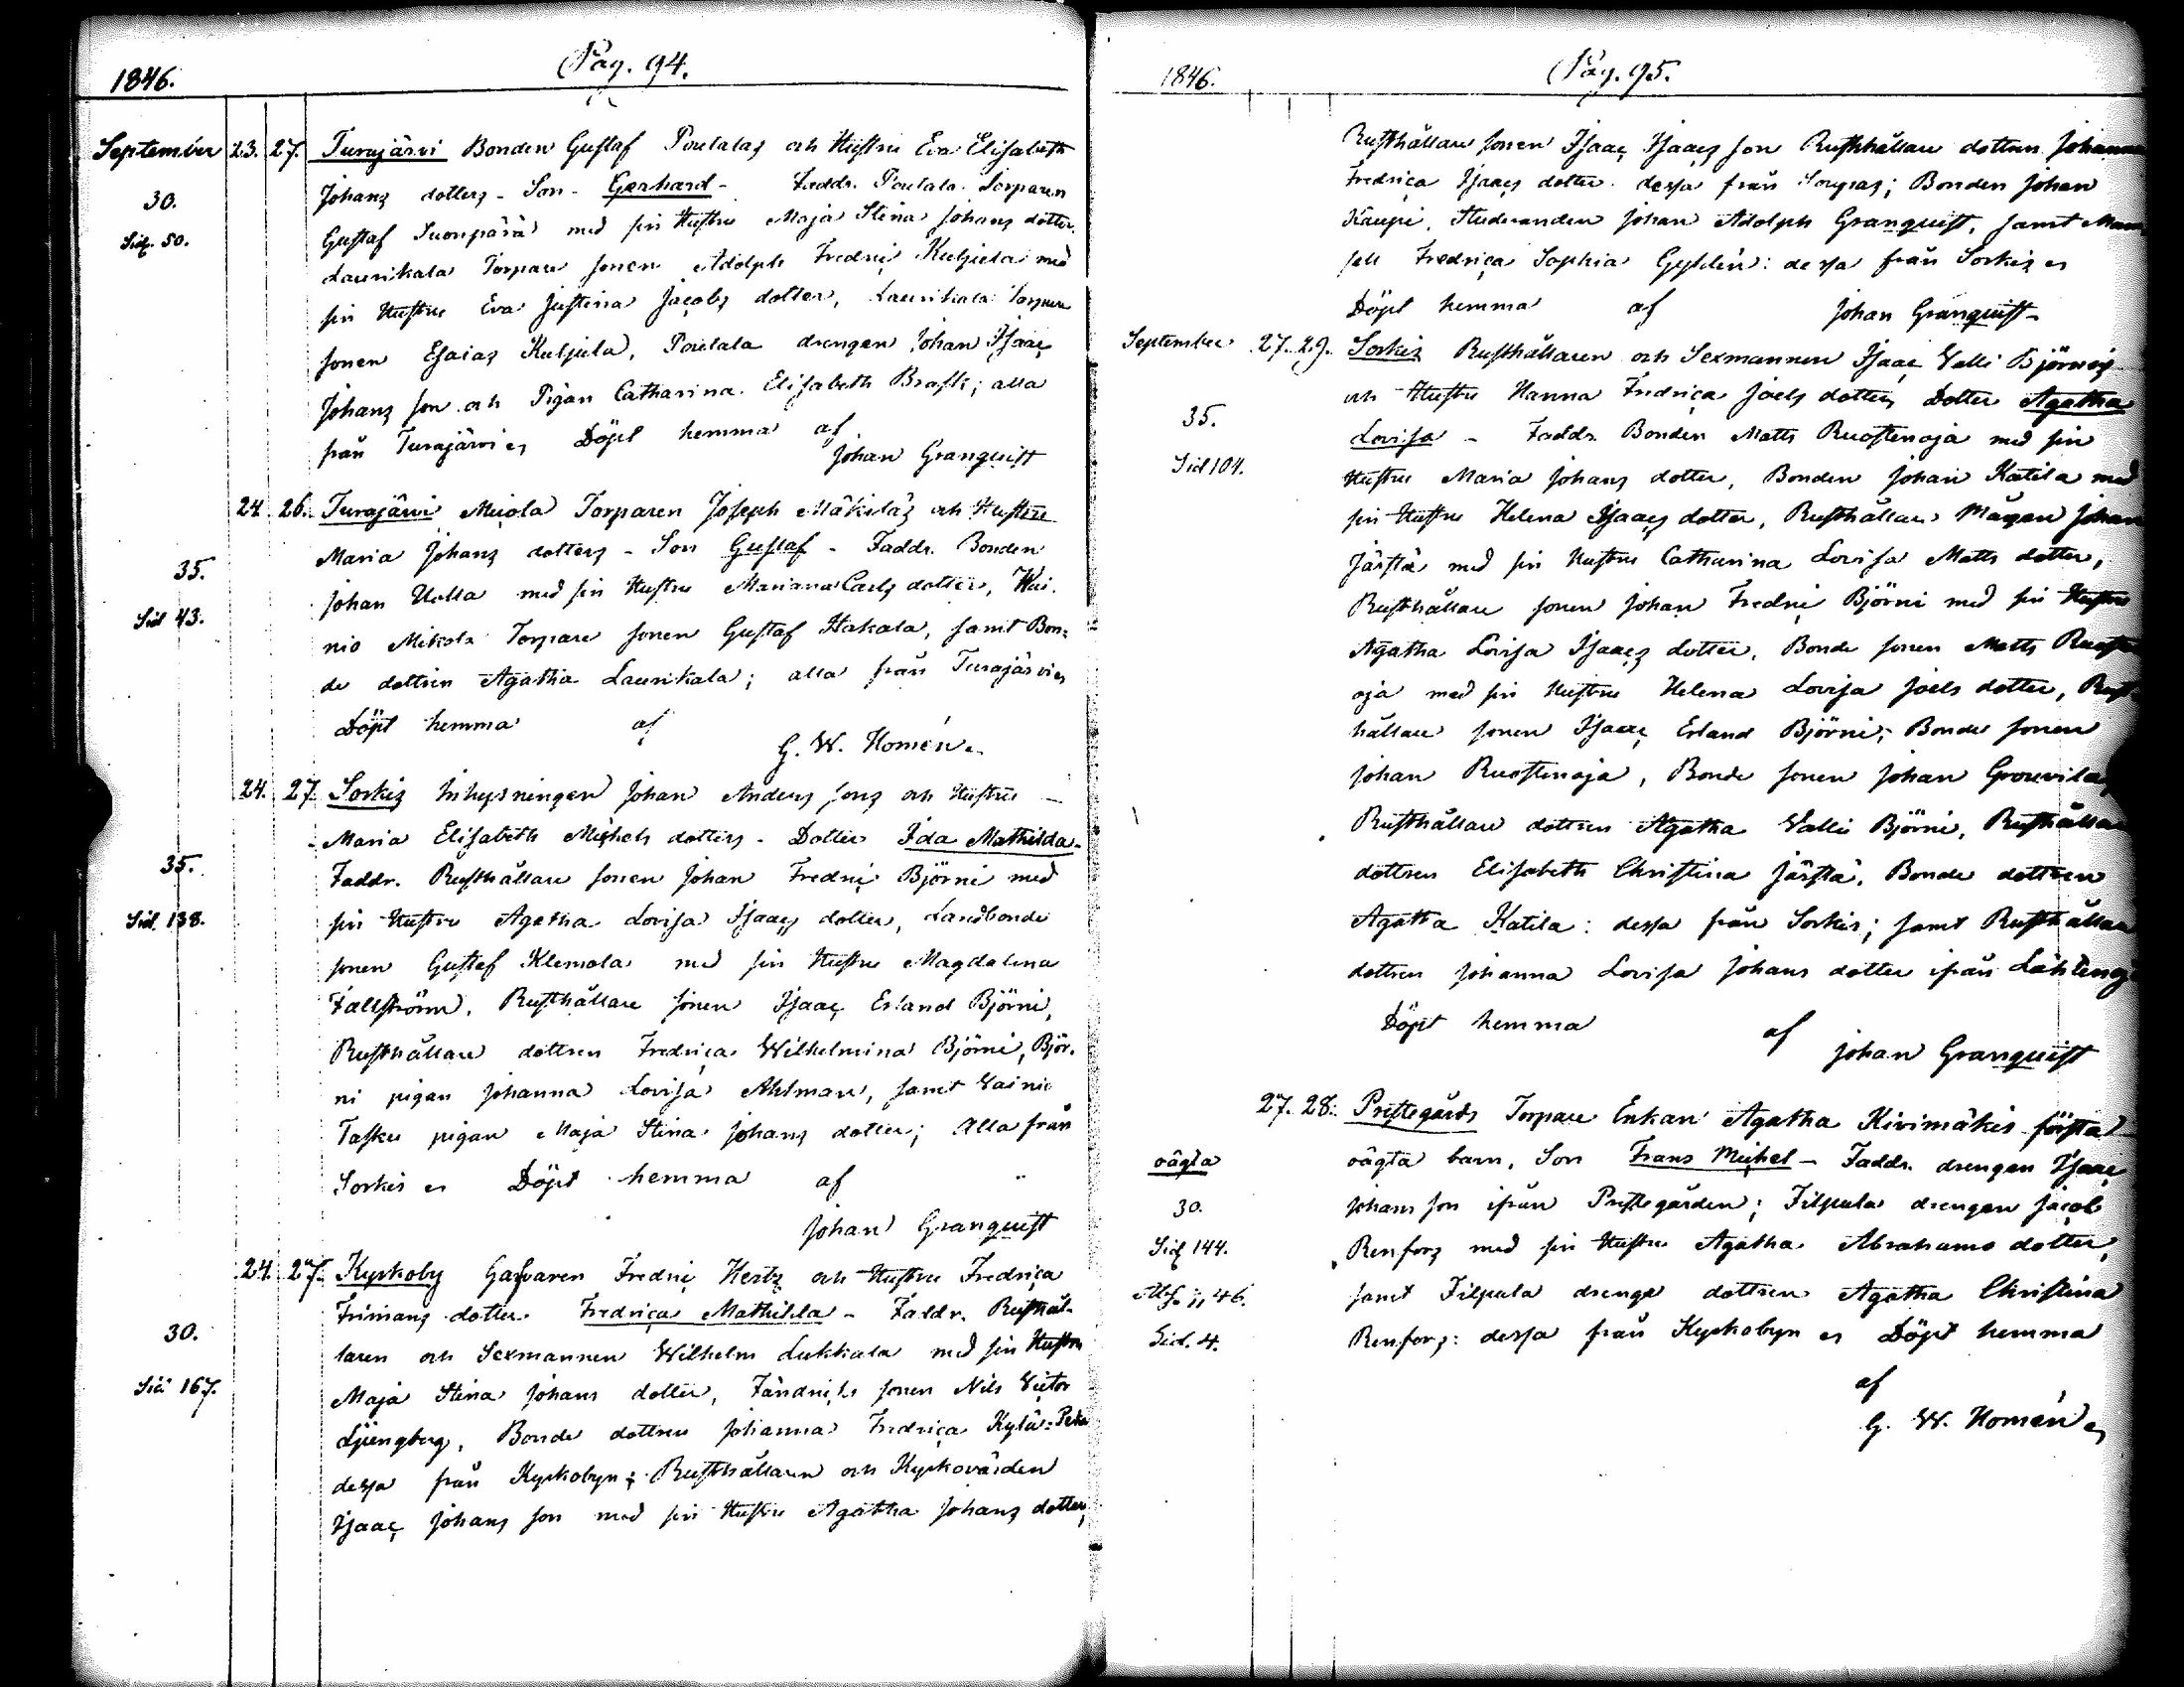 1846.
Pag. 94.
September 23. 27. Turajärvi Bonden Gustaf Poutalas och Hustru Eva Elisabeth
Johans dotters - Son - Gerhard - Faddr. Poutala Torparen
30.
Gustaf Suonpärä med sin Hustru Maja Stina Johans dotter,
Sid. 50.
Laurikala Torpare sonen Adolph Fredric Kuljula med
sin Hustru Eva Justina Jacobs dotter, Laurikala Torpare
sonen Esaias Kuljula, Poutala drengen Johan Isaac
Johans son och Pigan Catharina Elisabeth Brask; alla
från Turajärvi Döpt hemma af
Johan Granquist
24. 26. Turajärvi Muola Torparen Joseph Mäkiläs och Hustru
Maria Johans dotters - Son Gustaf - Faddr. Bonden
35.
Johan Uolla med sin Hustru Mariana Carls dotter, Wai-
Sid 43.
nio Mikola Torpare sonen Gustaf Hakala, samt Bon-
de dottren Agatha Laurikala; alla från Turajärvi
Döpt hemma af
G. W. Homén.
24. 27. Sorkis Inhysningen Johan Anders sons och Hustru
Maria Elisabeth Michels dotters - Dotter Ida Mathilda -
35.
Faddr. Rusthållare sonen Johan Fredric Björni med
Sid. 138.
sin Hustru Agatha Lovisa Isaacs dotter, Landbonde
sonen Gustaf Klemola med sin Hustru Magdalena
Fallström, Rusthållare sonen Isaac Erland Björni,
Rusthållare dottren Fredrica Wilhelmina Björni, Björ-
ni pigan Johanna Lovisa Ahlman, samt Vainio
Tasku pigan Maja Stina Johans dotter; alla från
Sorkis Döpt hemma af
Johan Granquist
24. 27. Kyrkoby Garfvaren Fredric Hertz och Hustru Fredrica
Frimans dotter. Fredrica Mathilda - Faddr. Rusthål-
30.
laren och Sexmannen Wilhelm Lukkala med sin Hustru
Sid 167.
Maja Stina Johans dotter, Fändrichs sonen Nils Victor
Ljungberg, Bonde dottren Johanna Fredrica Kylä-Peka
dessa från Kyrkobyn; Rusthållaren och Kyrkovärden
Isaac Johans son med sin Hustru Agatha Johans dotter,
1846.
Pag. 95.
Rusthållare sonen Isaac Isaacs son Rusthållare dottren Johanna
Fredrica Isaacs dotter dessa från Sorpas; Bonden Johan
Kaupi, Studeranden Johan Adolph Granquist, samt Mam
sell Fredrica Sophia Gyldén: dessa från Sorkis
Döpt hemma af Johan Granquist
September 27. 29. Sorkis Rusthållaren och Sexmannen Isaac Valli Björnis
och Hustru Hanna Fredrica Joels dotters Dotter Agatha
35.
Lovisa - Faddr. Bonden Matts Ruostenoja med sin
Sid 104.
Hustru Maria Johans dotter, Bonden Johan Katila med
sin Hustru Helena Isaacs dotter, Rusthållare Mågen Johan
Järstä med sin Hustru Catharina Lovisa Matts dotter,
Rusthållare sonen Johan Fredric Björni med sin Hustru
Agatha Lovisa Isaacs dotter, Bonde sonen Matts Ruosten
oja med sin Hustru Helena Lovisa Joels dotter, Rust
hållare sonen Isaac Erland Björni, Bonde sonen
Johan Ruostenoja, Bonde sonen Johan Grouvila,
Rusthållare dottren Agatha Valli Björni, Rusthållare
dottren Elisabeth Christina Järstä, Bonde dottren
Agatha Katila: dessa från Sorkis; samt Rusthållare
dottren Johanna Lovisa Johans dotter ifrån
Döpt hemma af
Johan Granquist
27. 28. Prestegårds Torpare Enkan Agatha Kivimäkis första
oägta
oägta barn, Son Frans Michel - Faddr. drengen Isaac
30.
Johans son ifrån Prestegården; Filpula drengen Jacob
Sid 144.
Renfors med sin Hustru Agatha Abrahams dotter,
46.
samt Filpula drenge dottren Agatha Christina
Sid. 4.
Renfors: dessa från Kyrkobyn Döpt hemma
af
G. W. Homén